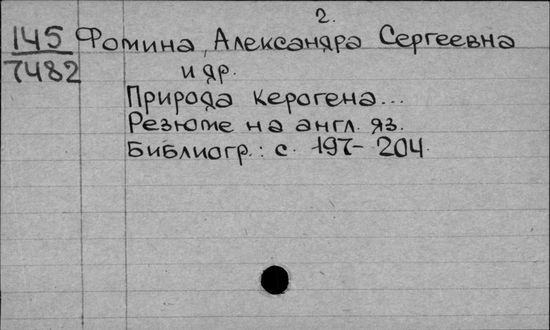 2.
145 Фомина, Александра Сергеевна
7482 и др.
Природа керогена...
Резюме на англ. яз.
Библиогр.: с. 197-204.